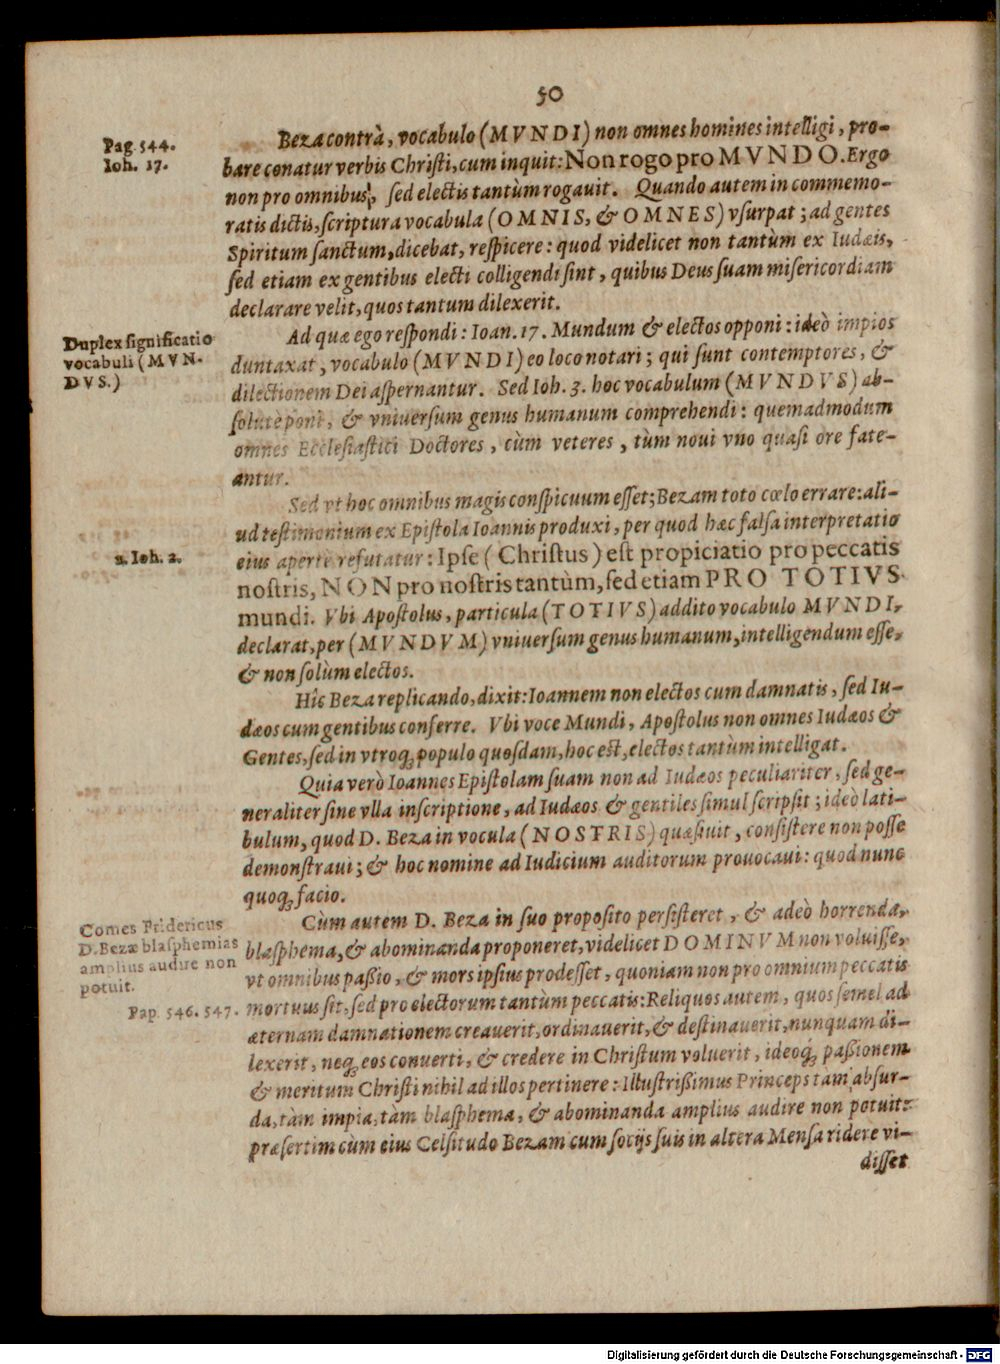 50
Pag. 544.
Ioh. 17.
Beza contrà, vocabulo (MVNDI) non omnes homines intelligi, pro-
bare conatur verbis Christi, cum inquit: Non rogo pro MVNDO. Ergo
non pro omnibus, sed electis tantùm rogauit. Quando autem in commemo-
ratis dictis, scriptura vocabula (OMNIS, & OMNES) vsurpat; ad gentes
Spiritum sanctum, dicebat, respicere: quod videlicet non tantùm ex Iudæis,
sed etiam ex gentibus electi colligendi sint, quibus Deus suam misericordiam
declarare velit, quos tantum dilexerit.
Duplex significatio
vocabuli (MVN-
DVS.)
Ad quæ ego respondi: Ioan. 17. Mundum & electos opponi: ideò impios
duntaxat, vocabulo (MVNDI) eo loco notari; qui sunt contemptores, &
dilectionem Dei aspernantur. Sed Ioh. 3. hoc vocabulum (MVNDVS) ab-
solutè poni, & vniuersum genus humanum comprehendi: quemadmodum
omnes Ecclesiastici Doctores, cùm veteres, tùm noui vno quasi ore fate-
antur.
Sed vt hoc omnibus magis conspicuum esset; Bezam toto cœlo errare: ali-
ud testimonium ex Epistola Ioannis produxi, per quod hæc falsa interpretatio
1. Ioh. 2.
eius apertè refutatur: Ipse (Christus) est propiciatio pro peccatis
nostris, NON pro nostris tantùm, sed etiam PRO TOTIVS
mundi. Vbi Apostolus, particula (TOTIVS) addito vocabulo MVNDI,
declarat, per (MVNDVM) vniuersum genus humanum, intelligendum esse,
& non solùm electos.
Hîc Beza replicando, dixit: Ioannem non electos cum damnatis, sed Iu-
dæos cum gentibus conferre. Vbi voce Mundi, Apostolus non omnes Iudæos &
Gentes, sed in vtroq; populo quosdam, hoc est, electos tantùm intelligat.
Quia verò Ioannes Epistolam suam non ad Iudæos peculiariter, sed ge-
neraliter sine vlla inscriptione, ad Iudæos & gentiles simul scripsit; ideò lati-
bulum, quod D. Beza in vocula (NOSTRIS) quæsiuit, consistere non posse
demonstraui; & hoc nomine ad Iudicium auditorum prouocaui: quod nunc
quoq; facio.
Comes Fridericus
D. Bezæ blasphemias
amplius audire non
potuit.
Pap. 546. 547.
Cùm autem D. Beza in suo proposito persisteret, & adeò horrenda,
blasphema, & abominanda proponeret, videlicet DOMINVM non voluisse,
vt omnibus passio, & mors ipsius prodesset, quoniam non pro omnium peccatis
mortuus sit, sed pro electorum tantùm peccatis: Reliquos autem, quos semel ad
æternam damnationem creauerit, ordinauerit, & destinauerit, nunquam di-
lexerit, neq; eos conuerti, & credere in Christum voluerit, ideoq; passionem
& meritum Christi nihil ad illos pertinere: Illustrissimus Princeps tam absur-
da, tàm impia, tàm blasphema, & abominanda amplius audire non potuit:
præsertim cùm eius Celsitudo Bezam cum socijs suis in altera Mensa ridere vi-
disset
Digitalisierung gefördert durch die Deutsche Forschungsgemeinschaft - DFG